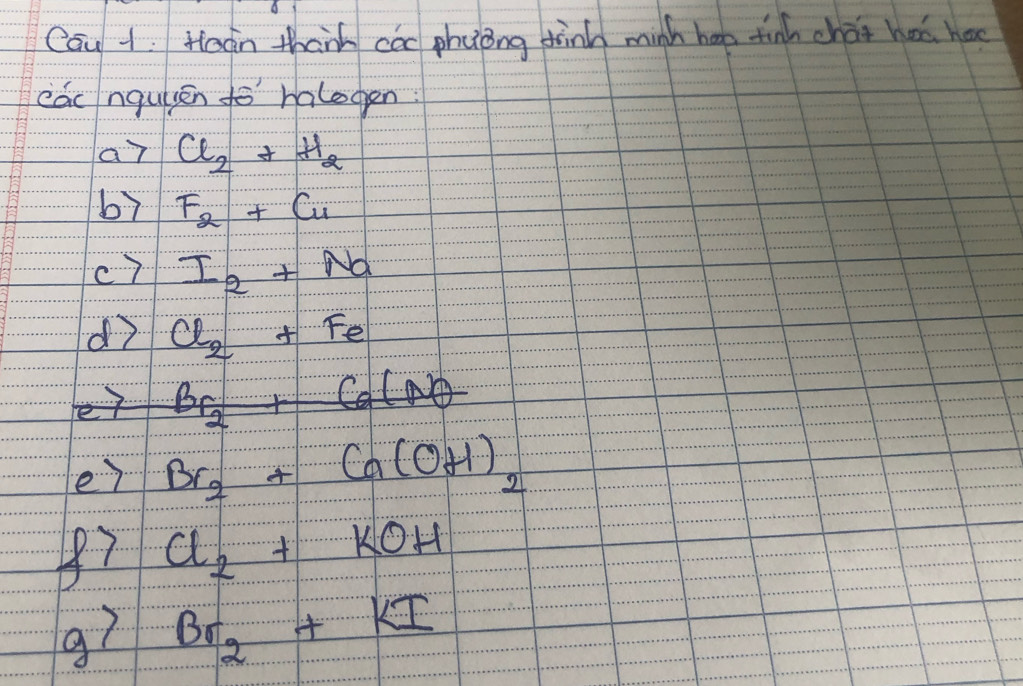 Câu 1: Hoàn thành các phương trình minh hoạ tính chất hoá học
các nguyên tố halogen:
a> Cl₂ + H₂
b> F₂ + Cu
c> I₂ + Na
d> Cl₂ + Fe
e> Br₂ + Ca(NO
e> Br₂ + Ca(OH)₂
f> Cl₂ + KOH
g> Br₂ + KI